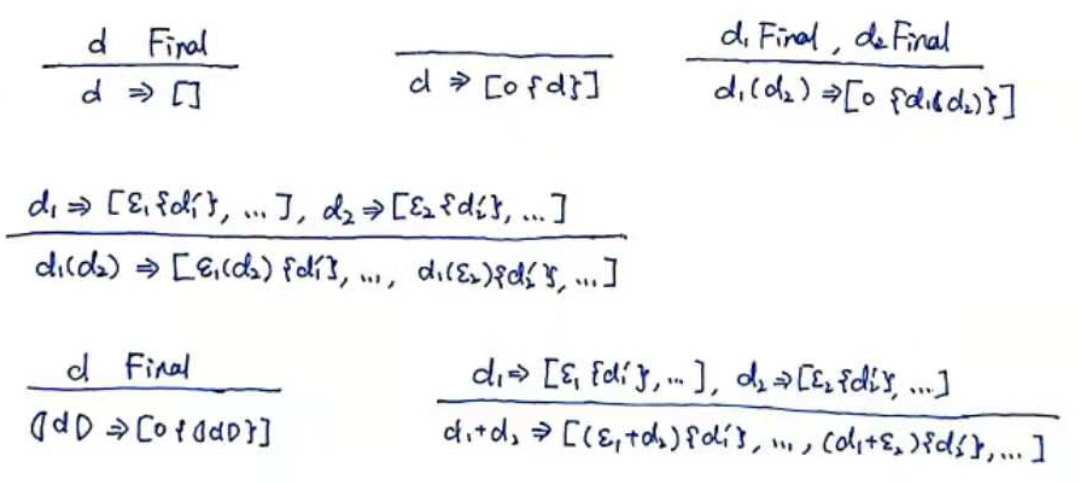 d Final
d ⇒ []
d ⇒ [o {d}]
d₁ Final , d₂ Final
d₁(d₂) ⇒ [o {d₁(d₂)}]
d₁ ⇒ [ε₁{d₁'}, ... ], d₂ ⇒ [ε₂{d₂'}, ... ]
d₁(d₂) ⇒ [ε₁(d₂) {d₁'}, ..., d₁(ε₂){d₂'}, ... ]
d Final
⦇d⦈ ⇒ [o {⦇d⦈}]
d₁ ⇒ [ε₁ {d₁'}, ... ], d₂ ⇒ [ε₂{d₂'}, ... ]
d₁+d₂ ⇒ [(ε₁+d₂){d₁'}, ... , (d₁+ε₂){d₂'}, ... ]